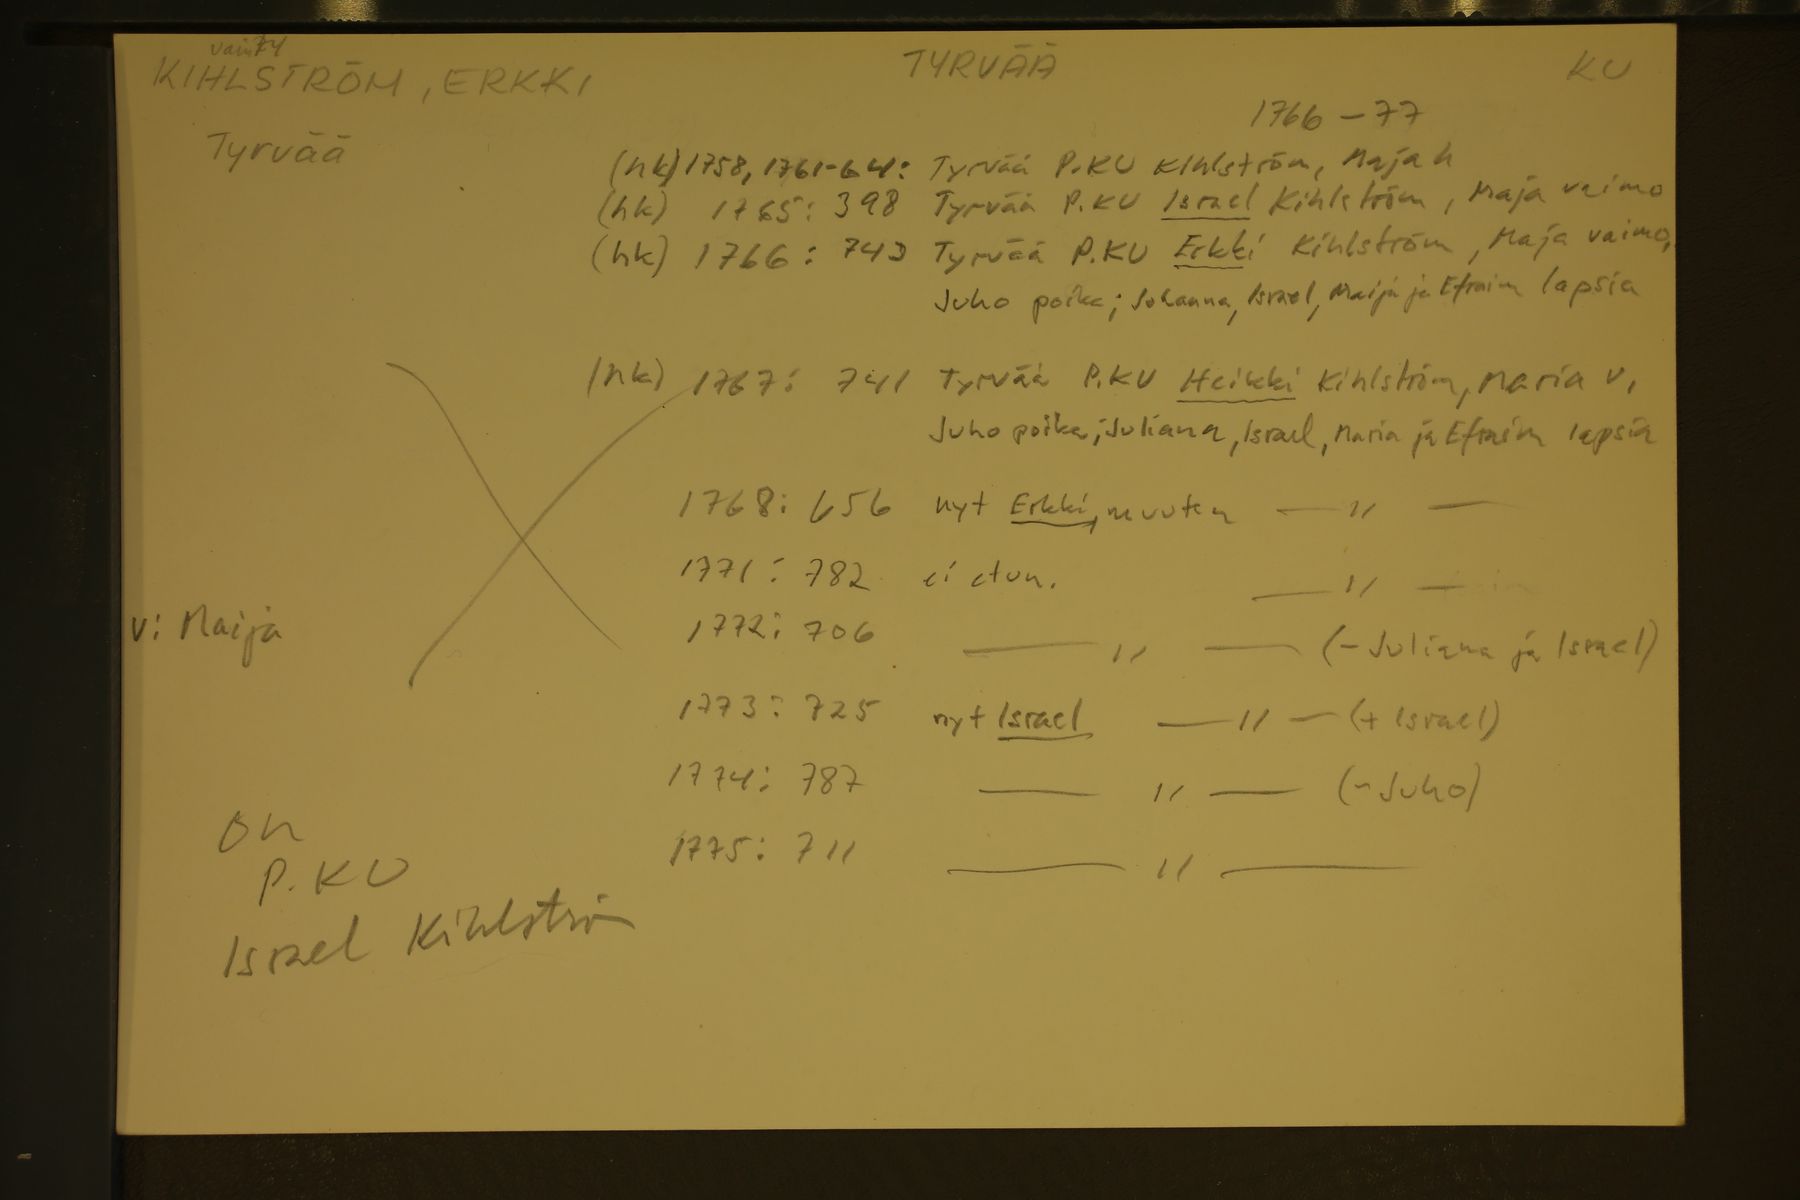 KIHLSTRÖM, ERKKI
TYRVÄÄ
KU
Tyrvää
1766-77
(hk) 1758, 1761-64: Tyrvää P.KU Kihlström, Maja h
(hk) 1765: 398 Tyrvää P.KU Israel Kihlström, Maja vaimo
(hk) 1766: 743 Tyrvää P.KU Erkki Kihlström, Maja vaimo,
Juho poika; Johanna, Israel, Maija ja Efraim lapsia
(hk) 1767: 741 Tyrvää P.KU Heikki Kihlström, Maria v,
Juho poika; Juliana, Israel, Maria ja Efraim lapsia
1768: 656 nyt Erkki, muuten — " —
1771: 782 ei etun. — " —
v: Maija
1772: 706 — " — (- Juliana ja Israel)
1773: 725 nyt Israel — " — (+ Israel)
1774: 787 — " — (- Juho)
1775: 711 — " —
on
P.KU
Israel Kihlström